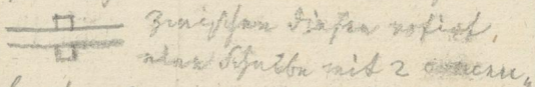 Zwischen diesen rotirt,
eine Scheibe mit 2 concen„